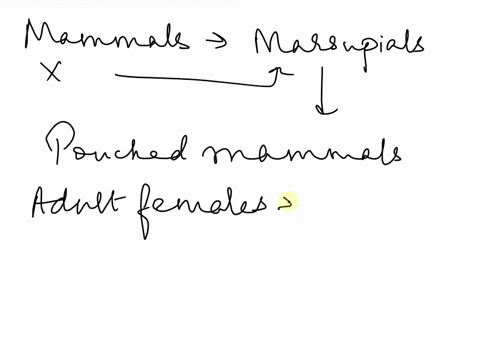 Mammals → Marsupials
X
Pouched mammals
Adult females >